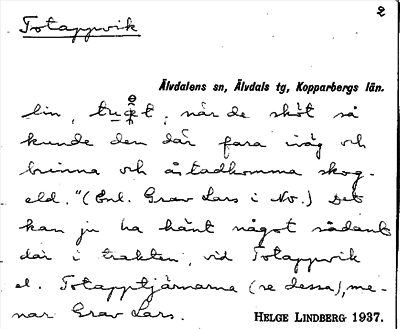 2
Totappvik
Älvdalens sn, Älvdals tg, Kopparbergs län.
lin, när de sköt så
kunde den där fara iväg och
brinna och åstadkomma skog-
eld." (Enl. Grav Lars i No.) Det
kan ju ha hänt något sådant
där i trakten, vid Totappvik
el. Totapptjärnarna (se dessa), me-
nar Grav Lars.
HELGE LINDBERG 1937.